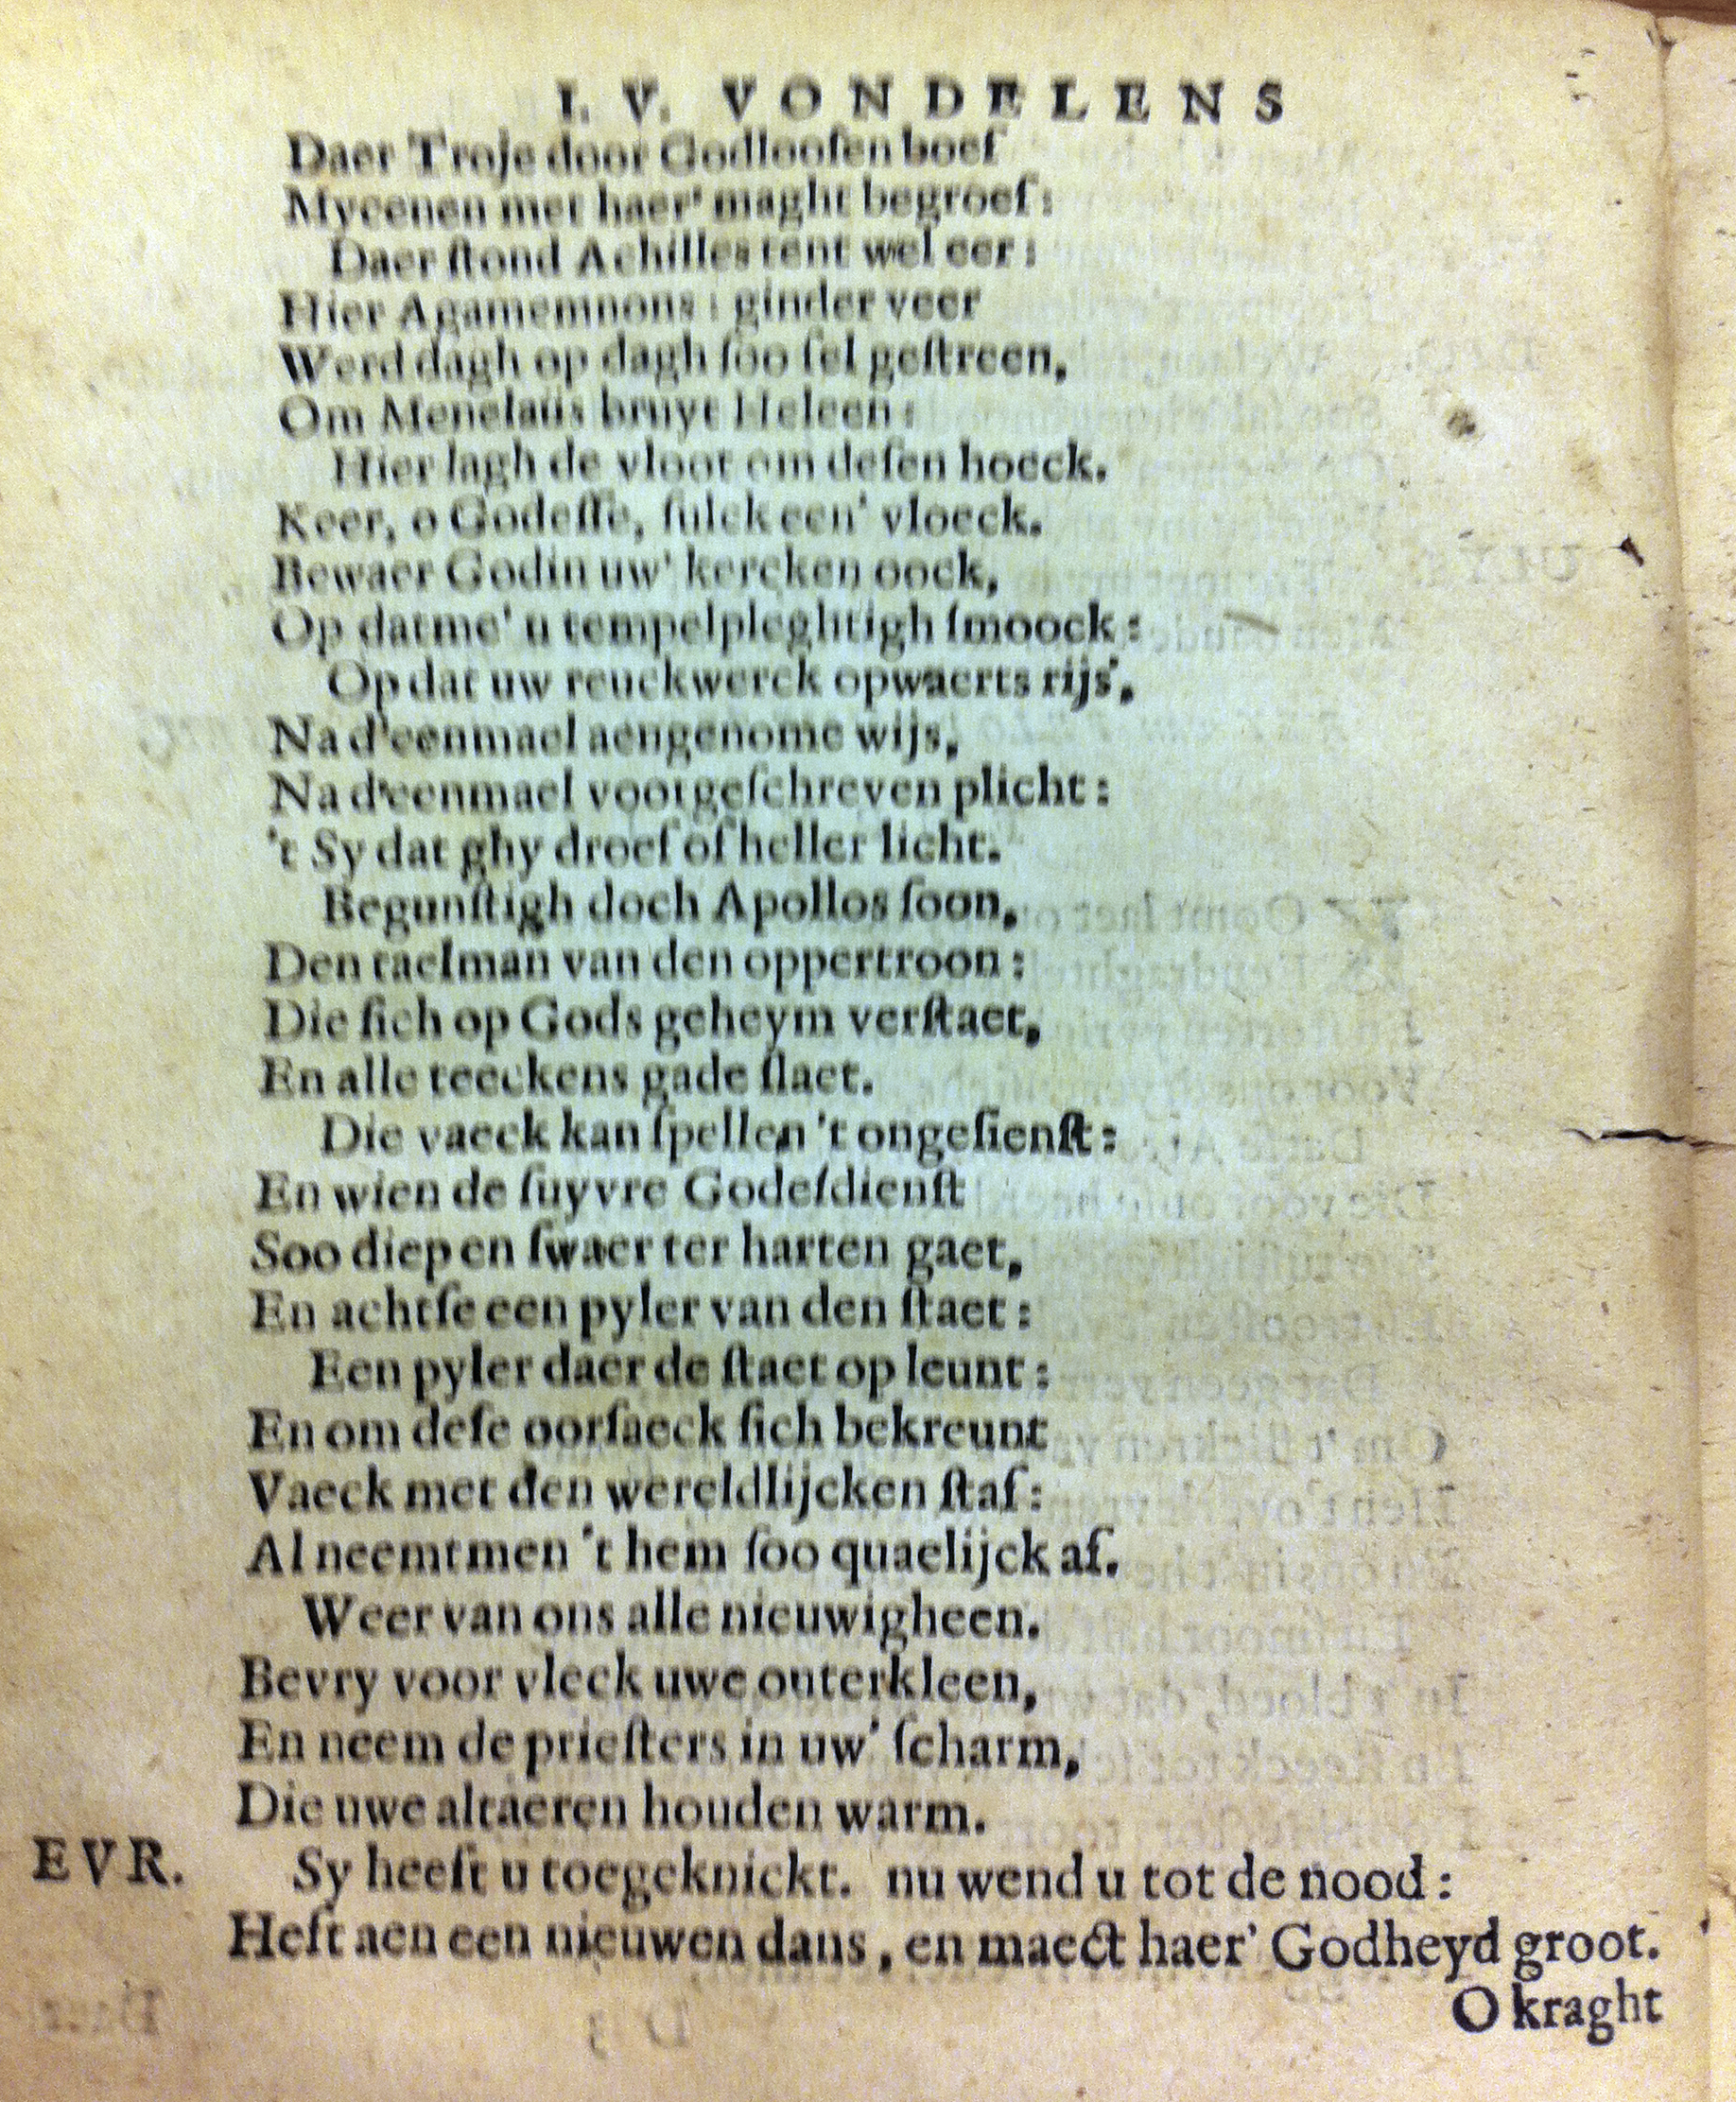 I. V. VONDELENS
Daer Troje door Godlooſen boef
Mycenen met haer' maght begroef:
Daer ſtond Achilles tent wel eer:
Hier Agamemnons: ginder veer
Werd dagh op dagh ſoo fel geſtreen,
Om Menelaüs bruyt Heleen:
Hier lagh de vloot om deſen hoeck.
Keer, o Godeſſe, ſulck een' vloeck.
Bewaer Godin uw' kercken oock,
Op datme' u tempelpleghtigh ſmoock:
Op dat uw reuckwerck opwaerts rijs',
Na d'eenmael aengenome wijs,
Na d'eenmael voorgeſchreven plicht:
't Sy dat ghy droef of heller licht.
Begunſtigh doch Apollos ſoon,
Den taelman van den oppertroon:
Die ſich op Gods geheym verſtaet,
En alle teeckens gade ſlaet.
Die vaeck kan ſpellen 't ongeſienſt:
En wien de ſuyvre Godeſdienſt
Soo diep en ſwaer ter harten gaet,
En achtſe een pyler van den ſtaet:
Een pyler daer de ſtaet op leunt:
En om deſe oorſaeck ſich bekreunt
Vaeck met den wereldlijcken ſtaf:
Al neemtmen 't hem ſoo quaelijck af.
Weer van ons alle nieuwigheen.
Bevry voor vleck uwe outerkleen,
En neem de prieſters in uw' ſcharm,
Die uwe altaeren houden warm.
EVR. Sy heeft u toegeknickt. nu wend u tot de nood:
Heft aen een nieuwen dans, en maect haer' Godheyd groot.
O kraght